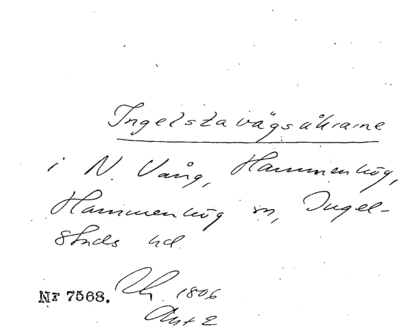 Ingelstavägsåkrarne
i N. Vång, Hammenhög,
Hammenhög sn, Ingel-
stads hd
Nr 7568. 1806
Akt 2